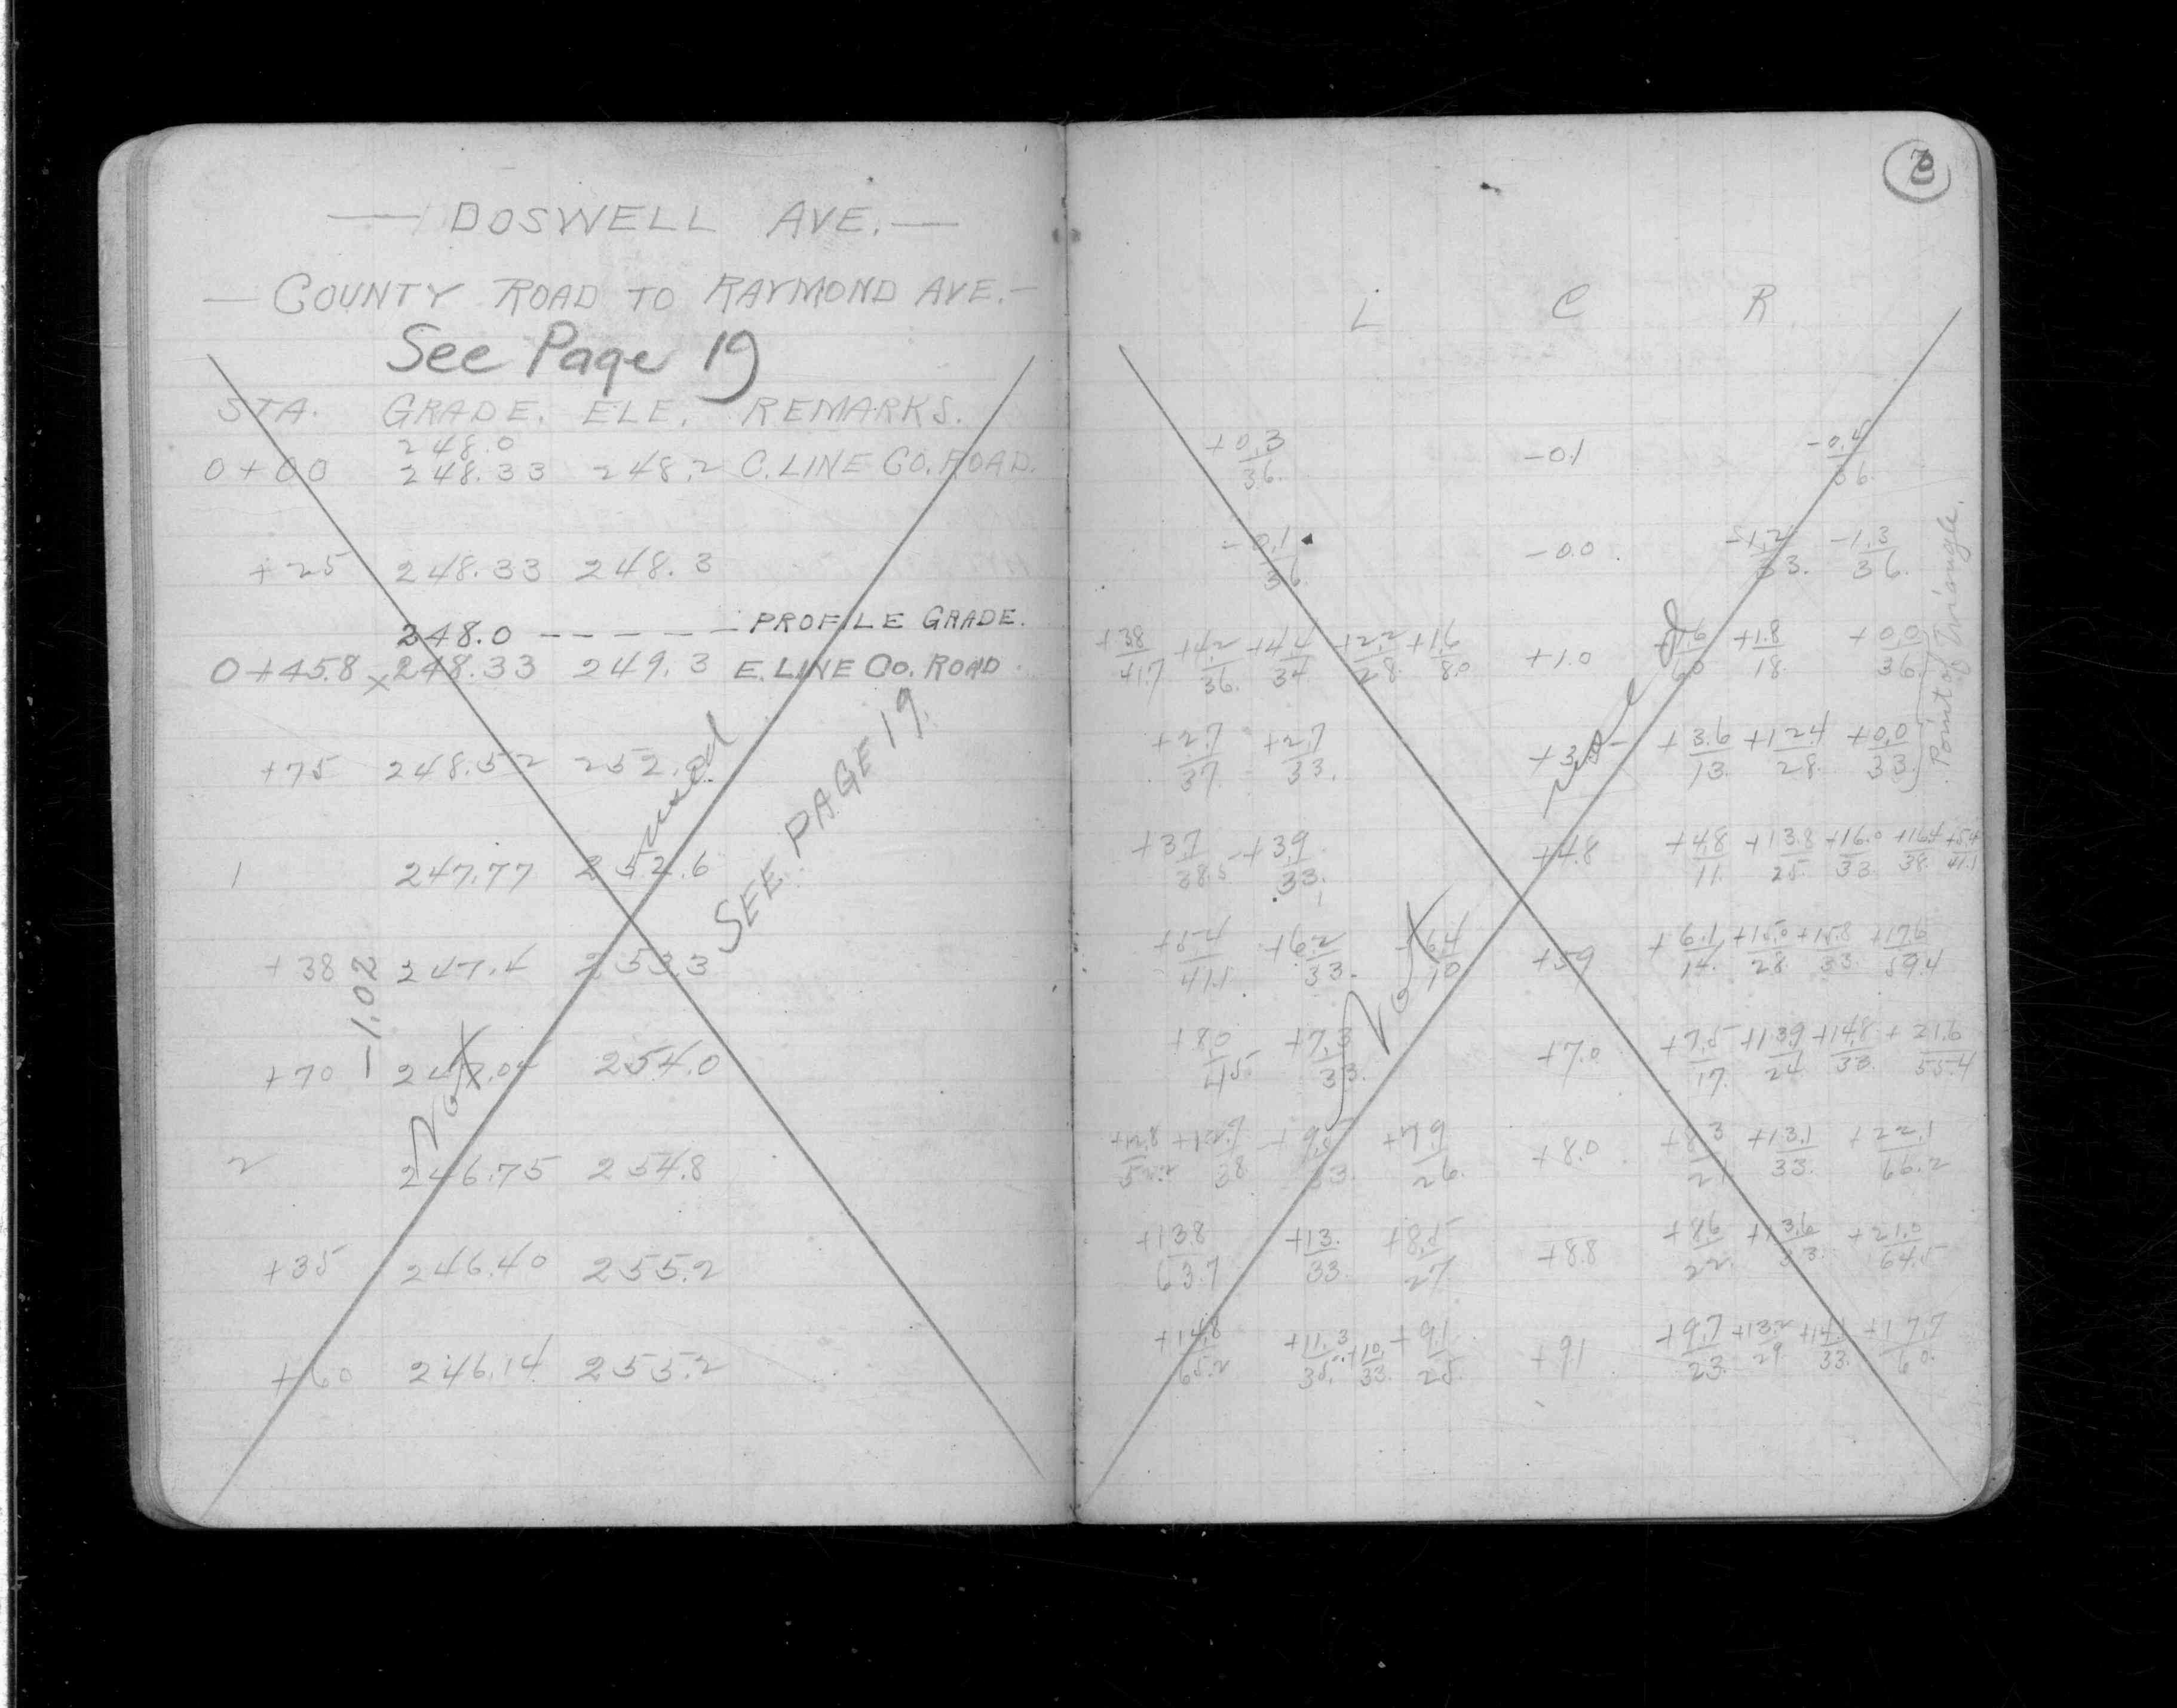 — DOSWELL AVE. —
— COUNTY ROAD TO RAYMOND AVE. —
See Page 19
STA. GRADE. ELE. REMARKS.
248.0
0+00 248.33 248.2 C. LINE CO. ROAD.
+25 248.33 248.3
248.0 — — — — — PROFILE GRADE.
0+45.8 x 248.33 249.3 E. LINE CO. ROAD.
+75 248.52 252.
1 247.77 252.6
+38 247.4 253.3
+70 247.04 254.0
2 246.75 254.8
+35 246.40 255.2
+60 246.14 255.2
—1.02
Not used
SEE PAGE 19.
L C R
+0.3/36. -0.1 -0.4/36.
-0.1/36 -0.0 -1.2/33. -1.3/36.
+3.8/41.7 +4.2/36. +4.4/34 +2.2/28. +1.6/8.0 +1.0 +1.8/18. +0.0/36.
+2.7/37. +2.7/33. +3.6/13. +12.4/28. +0.0/33.
Point of Triangle.
+3.7/38.5 +3.9/33. +4.8 +4.8/11. +13.8/25. +16.0/33. +16.4/38. +5.4/41.1
+5.4/41.1 +6.2/33. 6.4/10 +5.9 +6.1/14. +15.0/28. +15.8/33. +17.6/59.4
+8.0/45. +7.3/33. +7.0 +7.5/17. +13.9/24. +14.8/33. +21.6/55.4
+7.9/26. +8.0 +8.3/21 +13.1/33. +22.1/66.2
+13.8/63.7 +13./33. +8.5/27 +8.8 +8.6/22. +13.6/33. +21.0/64.5
+14.8/65.2 +11.3/35. +10./33. +9.1/25. +9.1 +9.7/23. +13.2/29. +14.1/33. +17.7/60.
Not used